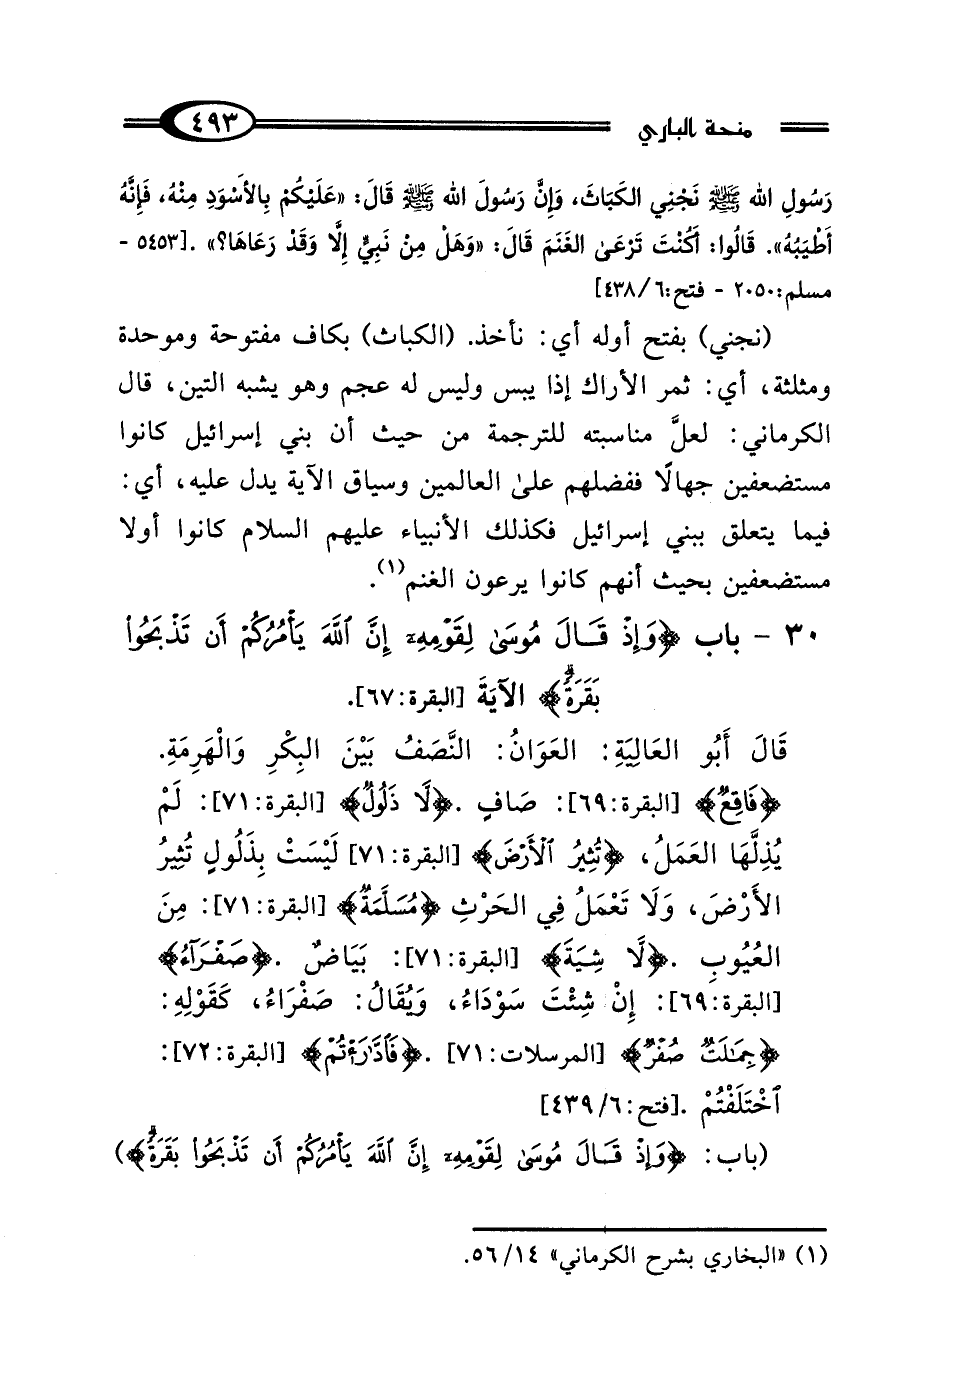 منحة الباري ٤٩٣
رَسُولِ الله ﷺ نَجْنِي الكَبَاثَ، وَإِنَّ رَسُولَ الله ﷺ قَالَ: «عَلَيْكُمْ بِالأَسْوَدِ مِنْهُ، فَإِنَّهُ
أَطْيَبُهُ». قَالُوا: أَكُنْتَ تَرْعَىٰ الغَنَمَ قَالَ: «وَهَلْ مِنْ نَبِيٍّ إِلَّا وَقَدْ رَعَاهَا؟» .[٥٤٥٣ -
مسلم: ٢٠٥٠ - فتح: ٦/ ٤٣٨]
(نجني) بفتح أوله أي: نأخذ. (الكباث) بكاف مفتوحة وموحدة
ومثلثة، أي: ثمر الأراك إذا يبس وليس له عجم وهو يشبه التين، قال
الكرماني: لعلَّ مناسبته للترجمة من حيث أن بني إسرائيل كانوا
مستضعفين جهالًا ففضلهم علىٰ العالمين وسياق الآية يدل عليه، أي:
فيما يتعلق ببني إسرائيل فكذلك الأنبياء عليهم السلام كانوا أولا
مستضعفين بحيث أنهم كانوا يرعون الغنم(١).
٣٠ - باب ﴿وَإِذْ قَالَ مُوسَىٰ لِقَوْمِهِۦٓ إِنَّ ٱللَّهَ يَأْمُرُكُمْ أَن تَذْبَحُوا۟
بَقَرَةً﴾ الآيَةَ [البقرة: ٦٧].
قَالَ أَبُو العَالِيَةِ: العَوَانُ: النَّصَفُ بَيْنَ البِكْرِ وَالْهَرِمَةِ.
﴿فَاقِعٌ﴾ [البقرة: ٦٩]: صَافٍ. ﴿لَّا ذَلُولٌ﴾ [البقرة: ٧١]: لَمْ
يُذِلَّهَا العَمَلُ، ﴿تُثِيرُ ٱلْأَرْضَ﴾ [البقرة: ٧١] لَيْسَتْ بِذَلُولٍ تُثِيرُ
الأَرْضَ، وَلَا تَعْمَلُ فِي الحَرْثِ ﴿مُسَلَّمَةٌ﴾ [البقرة: ٧١]: مِنَ
العُيُوبِ. ﴿لَّا شِيَةَ﴾ [البقرة: ٧١]: بَيَاضٌ. ﴿صَفْرَآءُ﴾
[البقرة: ٦٩]: إِنْ شِئْتَ سَوْدَاءُ، وَيُقَالُ: صَفْرَاءُ، كَقَوْلِهِ:
﴿جِمَٰلَتٌ صُفْرٌ﴾ [المرسلات: ٧١]. ﴿فَٱدَّٰرَْٰٔتُمْ﴾ [البقرة: ٧٢]:
ٱخْتَلَفْتُمْ. [فتح: ٦/ ٤٣٩]
(باب: ﴿وَإِذْ قَالَ مُوسَىٰ لِقَوْمِهِۦٓ إِنَّ ٱللَّهَ يَأْمُرُكُمْ أَن تَذْبَحُوا۟ بَقَرَةً﴾)
(١) «البخاري بشرح الكرماني» ١٤/ ٥٦.